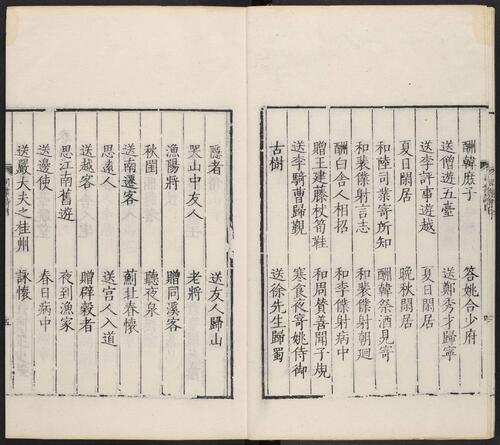 酬韓庶子　答姚合少府
送僧遊五臺　送鄭秀才歸寧
送李評事遊越　夏日閑居
夏日閑居　晚秋閑居
和陸司業寄所知　酬韓祭酒見寄
和裴僕射言志　和裴僕射朝廻
酬白舍人相招　和李僕射病中
贈王建藤杖筍鞋　和周贊善聞子規
送李騎曹歸覲　寒食夜寄姚侍御
古樹　送徐先生歸蜀
隱者　送友人歸山
哭山中友人　老將
漁陽將　贈同溪客
秋閨　聽夜泉
送南遷客　薊北春懷
思遠人　送宮人入道
送越客　贈辟穀者
思江南舊遊　夜到漁家
送邊使　春日病中
送嚴大夫之桂州　詠懷
五